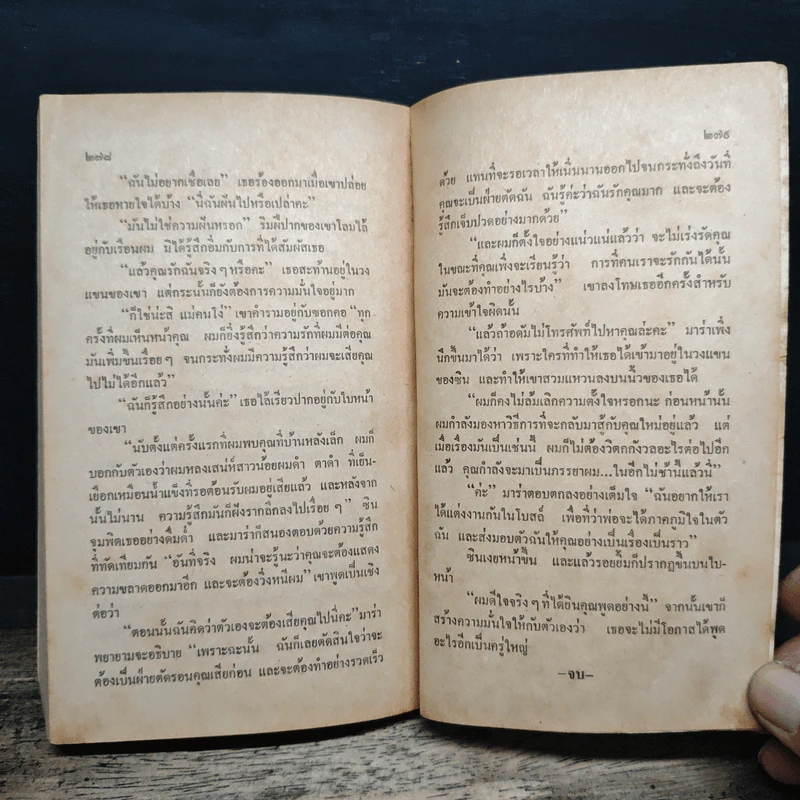 ๒๗๘
“ฉันไม่อยากเชื่อเลย” เธอร้องออกมาเมื่อเขาปล่อย
ให้เธอหายใจได้บ้าง “นี่ฉันฝันไปหรือเปล่าคะ”
“มันไม่ใช่ความฝันหรอก” ริมฝีปากของเขาโลมไล้
อยู่กับเรือนผม มิได้รู้สึกอิ่มกับการที่ได้สัมผัสเธอ
“แล้วคุณรักฉันจริงๆหรือคะ” เธอสะท้านอยู่ในวง
แขนของเขา แต่กระนั้นก็ยังต้องการความมั่นใจอยู่มาก
“ก็ใช่น่ะสิ แม่คนโง่” เขาคำรามอยู่กับซอกคอ “ทุก
ครั้งที่ผมเห็นหน้าคุณ ผมก็ยิ่งรู้สึกว่าความรักที่ผมมีต่อคุณ
มันเพิ่มขึ้นเรื่อยๆ จนกระทั่งผมมีความรู้สึกว่าผมจะเสียคุณ
ไปไม่ได้อีกแล้ว”
“ฉันก็รู้สึกอย่างนั้นค่ะ” เธอไล้เรียวปากอยู่กับใบหน้า
ของเขา
“นับตั้งแต่ครั้งแรกที่ผมพบคุณที่บ้านหลังเล็ก ผมก็
บอกกับตัวเองว่าผมหลงเสน่ห์สาวน้อยผมดำ ตาดำ ที่เย็น-
เยือกเหมือนน้ำแข็งที่รอต้อนรับผมอยู่เสียแล้ว และหลังจาก
นั้นไม่นาน ความรู้สึกมันก็ฝังรากลึกลงไปเรื่อยๆ” ซิน
จุมพิตเธออย่างดื่มด่ำ และมาร่าก็สนองตอบด้วยความรู้สึก
ที่ทัดเทียมกัน “อันที่จริง ผมน่าจะรู้นะว่าคุณจะต้องแสดง
ความขลาดออกมาอีก และจะต้องวิ่งหนีผม” เขาพูดเป็นเชิง
ต่อว่า
“ตอนนั้นฉันคิดว่าตัวเองจะต้องเสียคุณไปนี่คะ” มาร่า
พยายามจะอธิบาย “เพราะฉะนั้น ฉันก็เลยตัดสินใจว่าจะ
ต้องเป็นฝ่ายตัดรอนคุณเสียก่อน และจะต้องทำอย่างรวดเร็ว
๒๗๙
ด้วย แทนที่จะรอเวลาให้เนิ่นนานออกไปจนกระทั่งถึงวันที่
คุณจะเป็นฝ่ายตัดฉัน ฉันรู้ค่ะว่าฉันรักคุณมาก และจะต้อง
รู้สึกเจ็บปวดอย่างมากด้วย”
“และผมก็ตั้งใจอย่างแน่วแน่แล้วว่า จะไม่เร่งรัดคุณ
ในขณะที่คุณเพิ่งจะเรียนรู้ว่า การที่คนเราจะรักกันได้นั้น
มันจะต้องทำอย่างไรบ้าง” เขาลงโทษเธออีกครั้งสำหรับ
ความเข้าใจผิดนั้น
“แล้วถ้าอดัมไม่โทรศัพท์ไปหาคุณล่ะคะ” มาร่าเพิ่ง
นึกขึ้นมาได้ว่า เพราะใครที่ทำให้เธอได้เข้ามาอยู่ในวงแขน
ของซิน และทำให้เขาสวมแหวนลงบนนิ้วของเธอได้
“ผมก็คงไม่ล้มเลิกความตั้งใจหรอกนะ ก่อนหน้านั้น
ผมกำลังมองหาวิธีการที่จะกลับมาสู้กับคุณใหม่อยู่แล้ว แต่
เมื่อเรื่องมันเป็นเช่นนี้ ผมก็ไม่ต้องวิตกกังวลอะไรต่อไปอีก
แล้ว คุณกำลังจะมาเป็นภรรยาผม...ในอีกไม่ช้านี้แล้วนี่”
“ค่ะ” มาร่าตอบตกลงอย่างเต็มใจ “ฉันอยากให้เรา
ได้แต่งงานกันในโบสถ์ เพื่อที่ว่าพ่อจะได้ภาคภูมิใจในตัว
ฉัน และส่งมอบตัวฉันให้คุณอย่างเป็นเรื่องเป็นราว”
ซินเงยหน้าขึ้น และแล้วรอยยิ้มก็ปรากฏขึ้นบนใบ-
หน้า
“ผมดีใจจริงๆที่ได้ยินคุณพูดอย่างนี้” จากนั้นเขาก็
สร้างความมั่นใจให้กับตัวเองว่า เธอจะไม่มีโอกาสได้พูด
อะไรอีกเป็นครู่ใหญ่
–จบ–